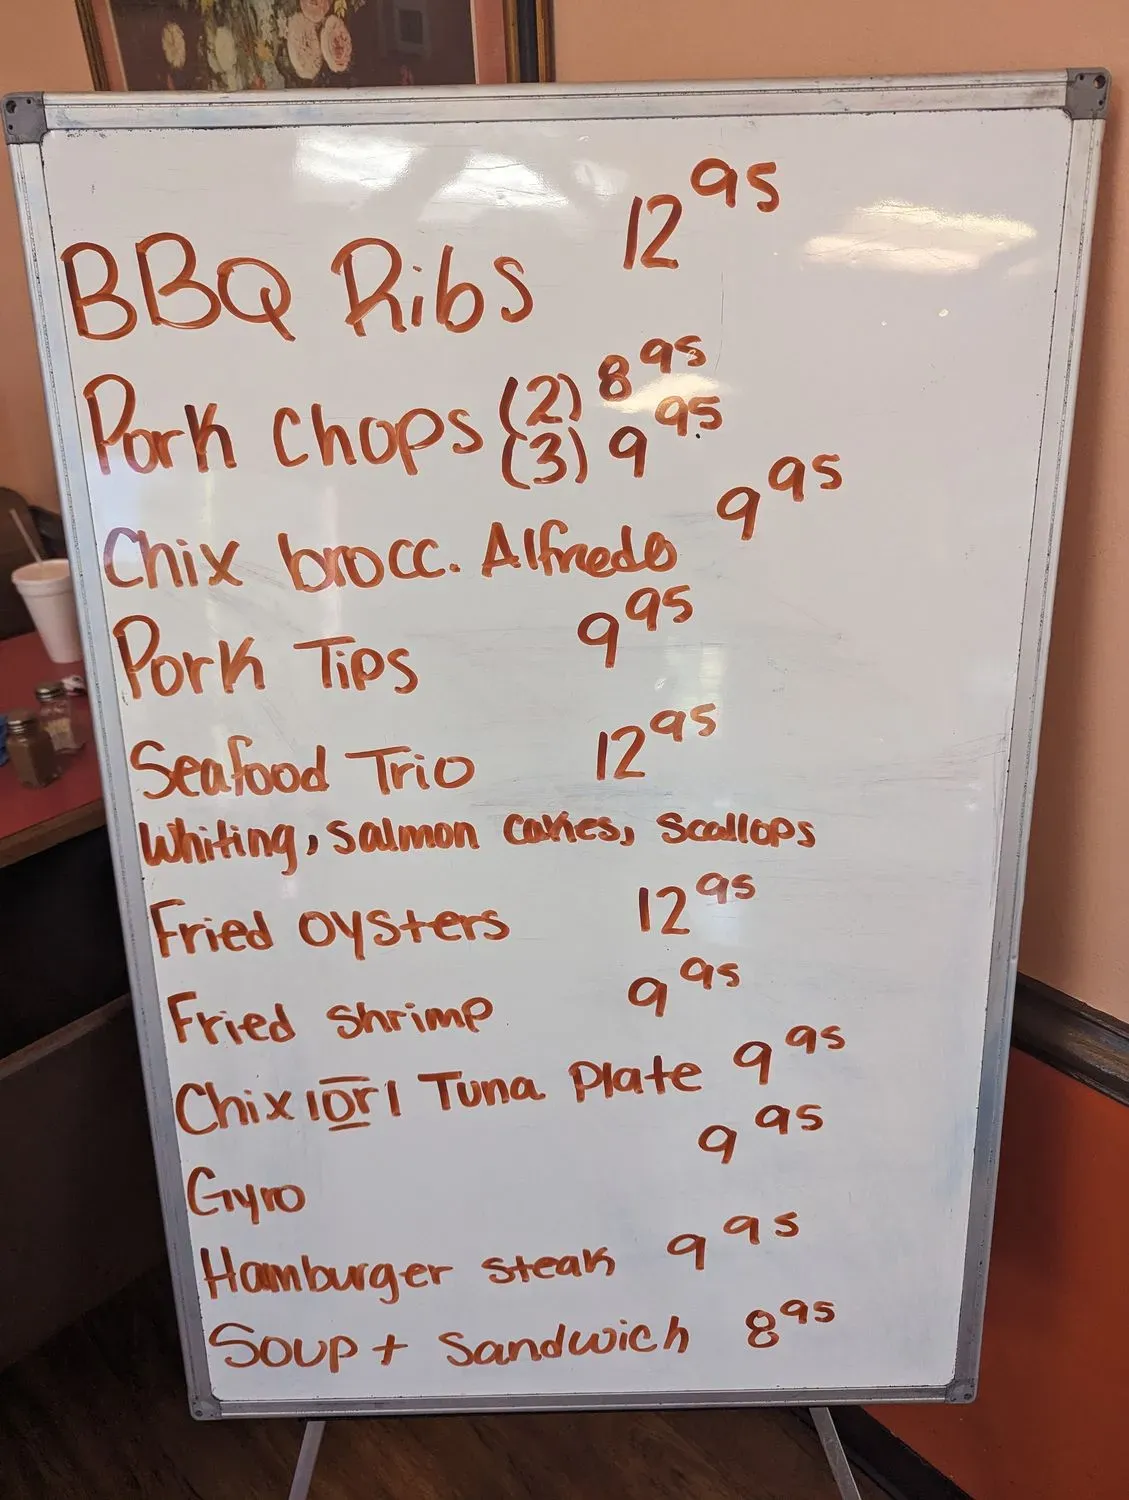 BBQ Ribs 12 95
Pork Chops (2) 8 95
(3) 9 95
Chix brocc. Alfredo 9 95
Pork Tips 9 95
Seafood Trio 12 95
Whiting, Salmon cakes, Scallops
Fried oysters 12 95
Fried shrimp 9 95
Chix |or| Tuna Plate 9 95
Gyro 9 95
Hamburger steak 9 95
Soup + Sandwich 8 95